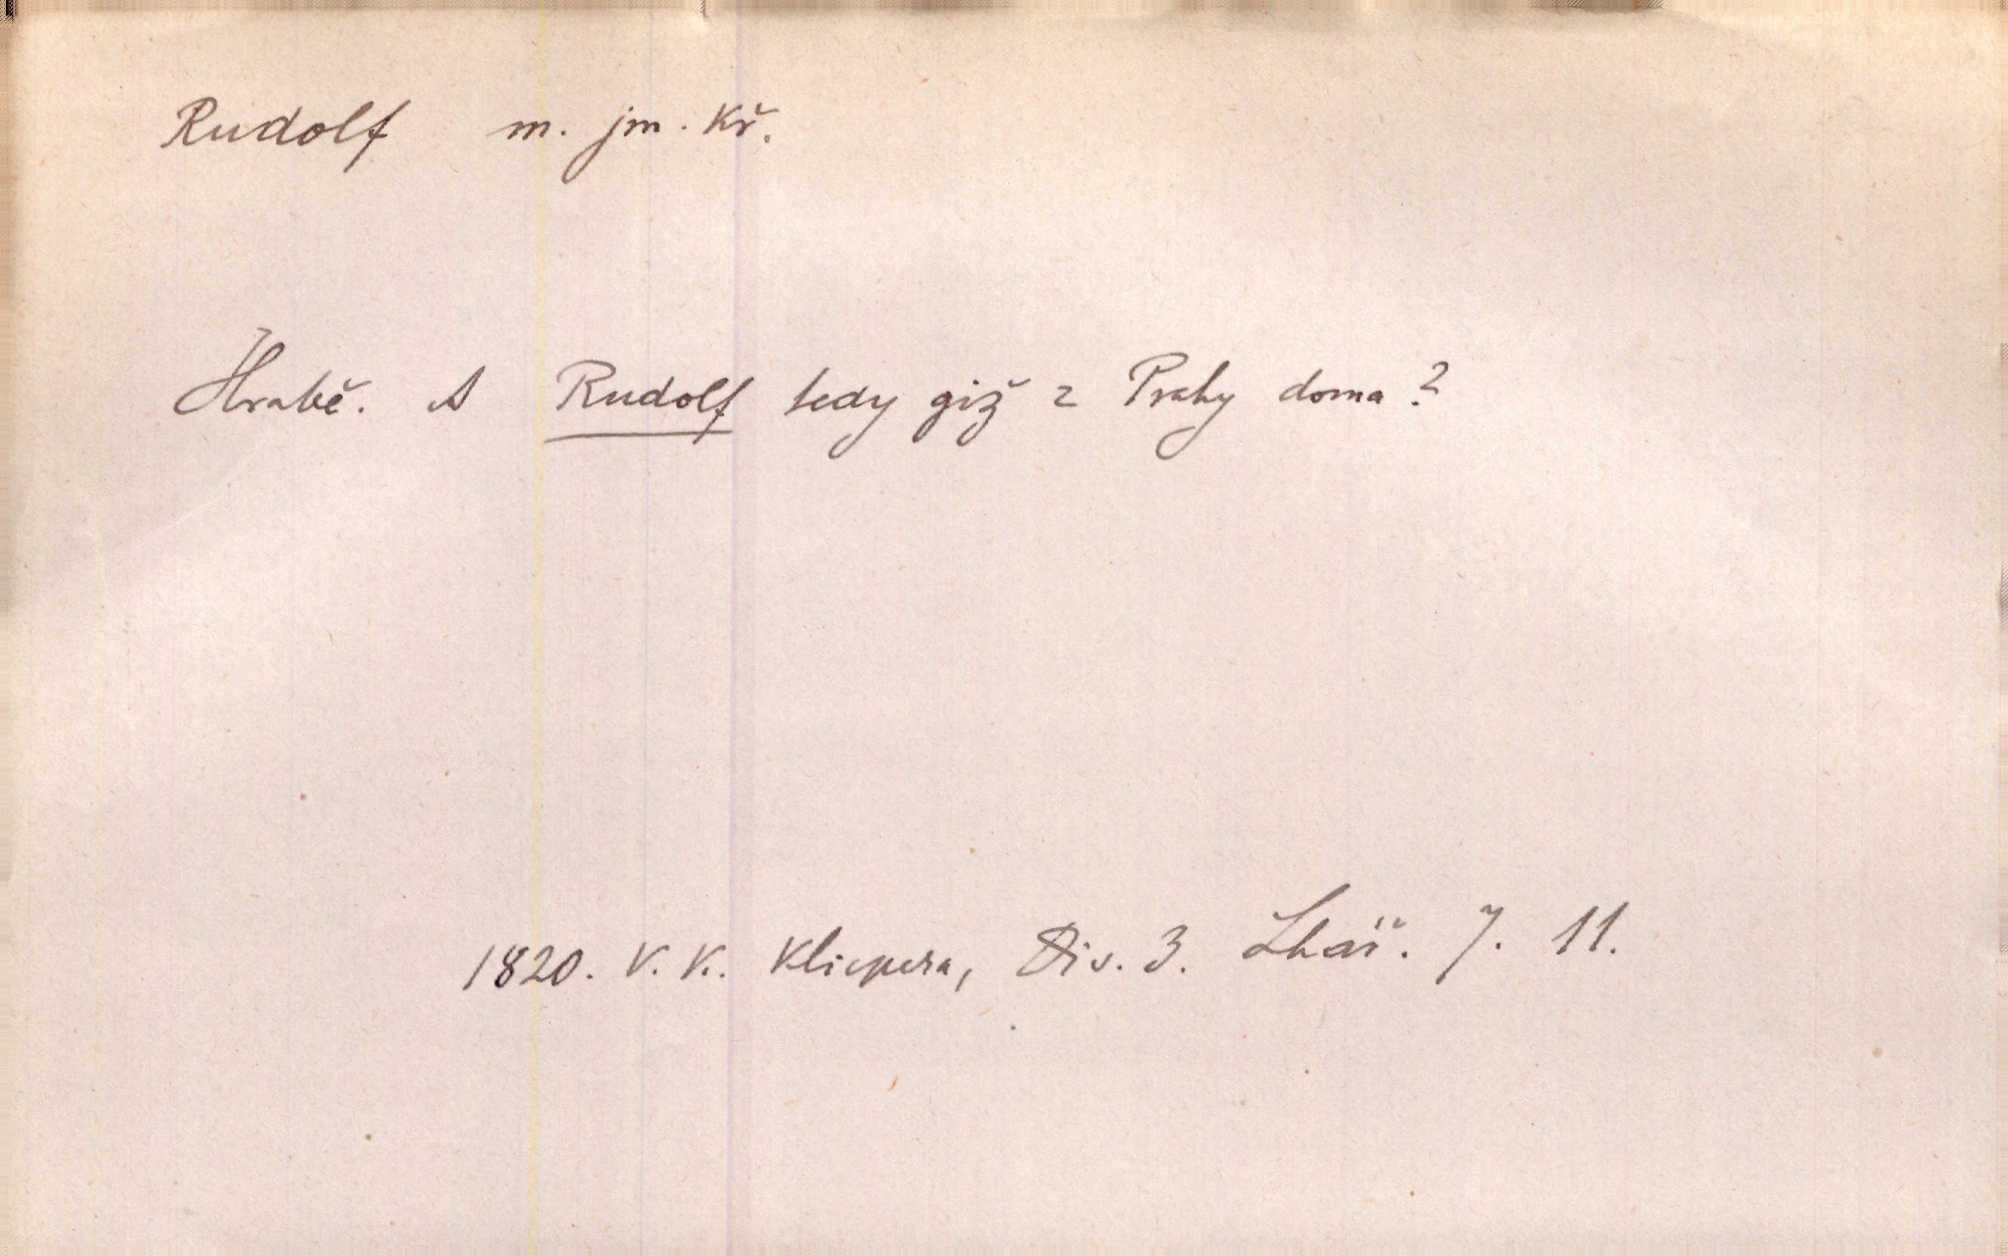 Rudolf m. jm. kř.
Hrabě. A Rudolf tedy giž z Prahy doma?
1820. V. K. Klicpera, Div. 3. Lhář. 7. 11.